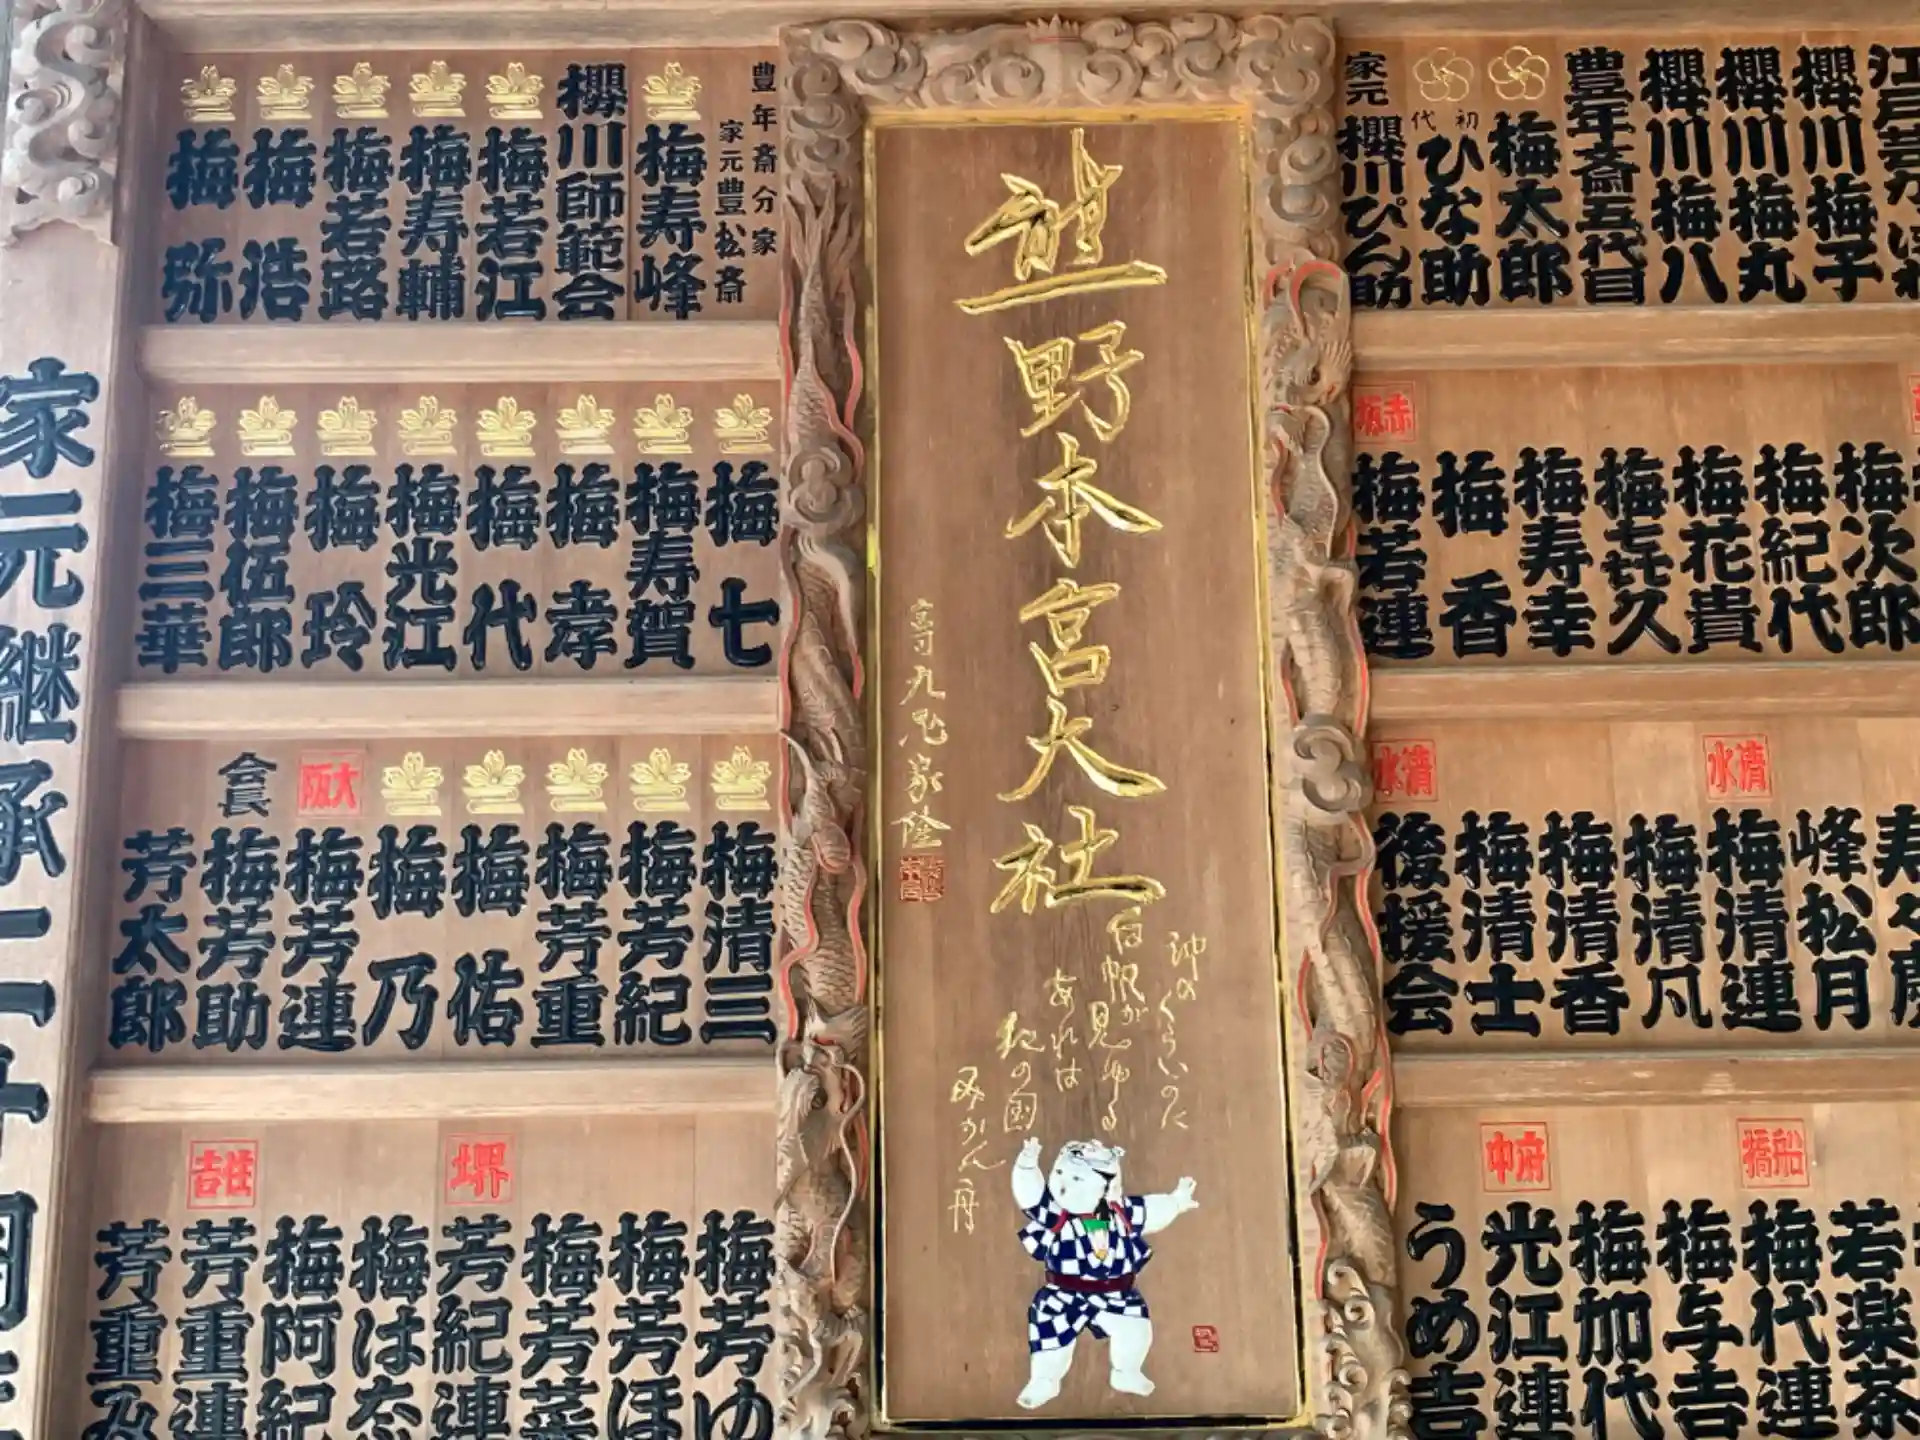 熊野本宮大社
宮司九鬼家隆
沖のくらいのに
白帆が見ゆる
あれは
紀の国
みかん舟
江戸芸かっぽれ
櫻川梅子
櫻川梅丸
櫻川梅八
豊年斎五代目
梅太郎
初代
ひな助
家元
櫻川ぴん助
梅次郎
梅紀代
梅花貴
梅㐂久
梅寿幸
梅香
赤坂
梅若連
峰松月
清水
梅清連
梅清凡
梅清香
梅清士
清水
後援会
若楽茶
船橋
梅代連
梅与吉
梅加代
府中
光江連
うめ吉
豊年斎分家
家元豊松斎
梅寿峰
櫻川師範会
梅若江
梅寿輔
梅若路
梅浩
梅弥
梅七
梅寿賀
梅孝
梅代
梅光江
梅玲
梅伍郎
梅三華
梅清三
梅芳紀
梅芳重
梅佑
梅乃
大阪
梅芳連
会長
梅芳助
芳太郎
梅芳ゆ
梅芳ほ
梅芳菜
堺
芳紀連
梅はな
梅阿紀
住吉
芳重連
芳重み
家元継承二十周